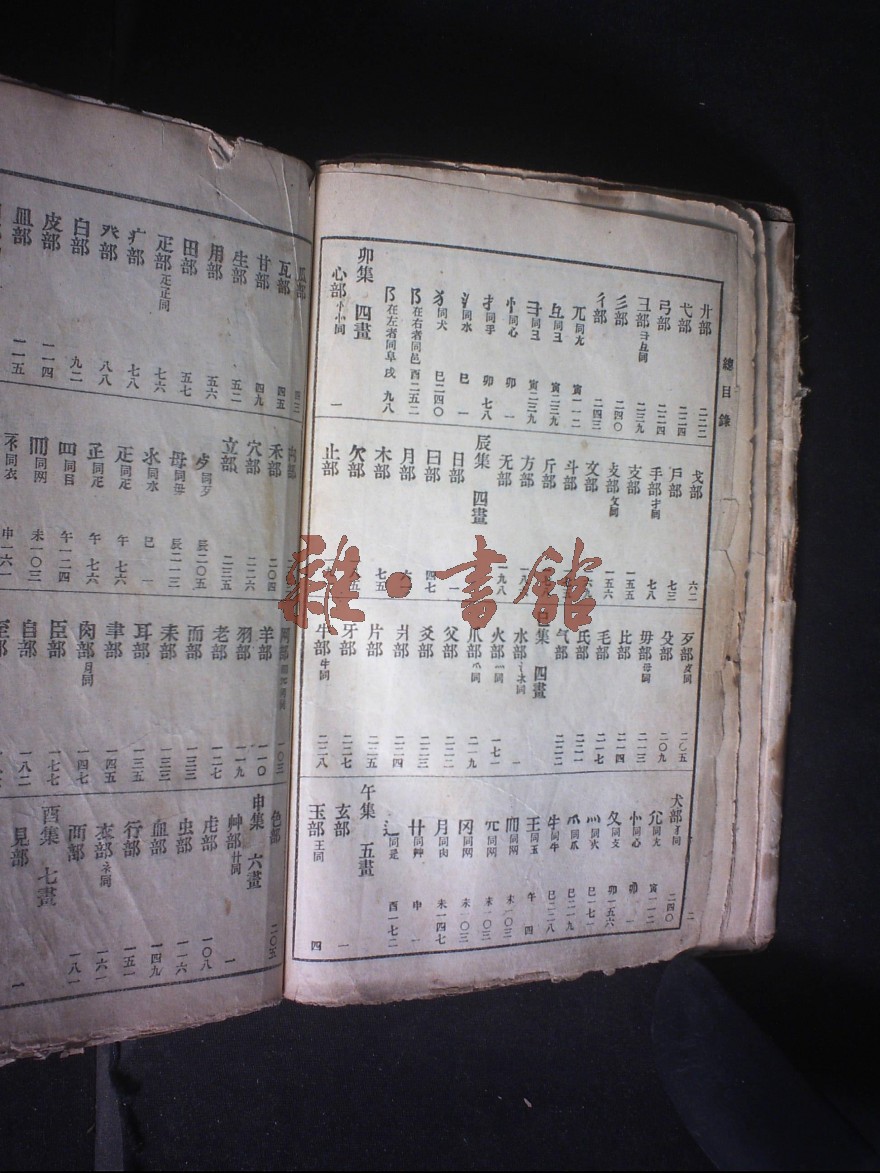 總目錄
廾部 二二二
弋部 二二四
弓部 二二四
彐部 彑彐同 二三九
彡部 二四〇
彳部 二四三
兀同尢 寅一一二
彑同彐 寅二三九
彐同彐 寅二三九
忄同心 卯一
扌同手 卯七八
氵同水 巳一
犭同犬 巳二四〇
阝在右者同邑 酉二五二
阝在左者同阜 戌九八
卯集 四畫
心部 忄㣺同 一
戈部 六二
戶部 七三
手部 扌同 七八
支部 一五五
攴部 攵同 一五六
文部
斗部
斤部
方部 一八
无部 一九八
辰集 四畫
日部 一
曰部 四七
月部
木部 七五
欠部
止部
歹部 歺同 二〇五
殳部 二〇九
毋部 母同 二一三
比部 二一四
毛部 二一五
氏部 二二一
气部 二二二
集 四畫
水部 氵氺同 一
火部 灬同 一七一
爪部 爫同 二一九
父部 二二二
爻部 二二三
爿部 二二四
片部 二二五
牙部 二二七
牛部 牜同 二二八
犬部 犭同 二四〇
尣同尢 寅一一二
㣺同心 卯一
攵同攴 卯一五六
灬同火 巳一七一
爫同爪 巳二一九
牜同牛 巳二二八
王同玉 午四
罒同网 未一〇三
同网 未一〇三
同网 未一〇三
月同肉 未一四七
艹同艸 申一
辶同辵 酉一七二
午集 五畫
玄部 一
玉部 王同 四
瓜部
瓦部 四五
甘部 四九
生部 五二
用部 五六
田部 五七
疋部 七六
疒部 七八
癶部 八八
白部 九二
皮部 一一四
皿部 一一五
禾部 二〇四
穴部 二二六
立部 二三五
歺同歹 辰二〇五
母同毋 辰二一三
氺同水 巳一
疋同疋 午七六
同疋 午七六
罒同目 午一二四
同网 未一〇三
衤同衣 申一六一
网部 一〇三
羊部 一一〇
羽部 一一九
老部 一二七
而部 一三三
耒部 一三三
耳部 一三五
聿部 一四五
肉部 月同 一四七
臣部 一七七
自部 一八二
至部
色部 二〇五
申集 六畫
艸部 艹同 一
虍部 一〇八
虫部 一一六
血部 一四九
行部 一五一
衣部 衤同 一六一
襾部 一八一
酉集 七畫
見部 一
二
雜·書館